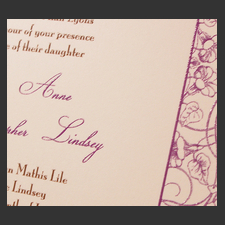 Lyons
our of your presence
e of their daughter
Anne
pher Lindsey
n Mathis Lile
e Lindsey